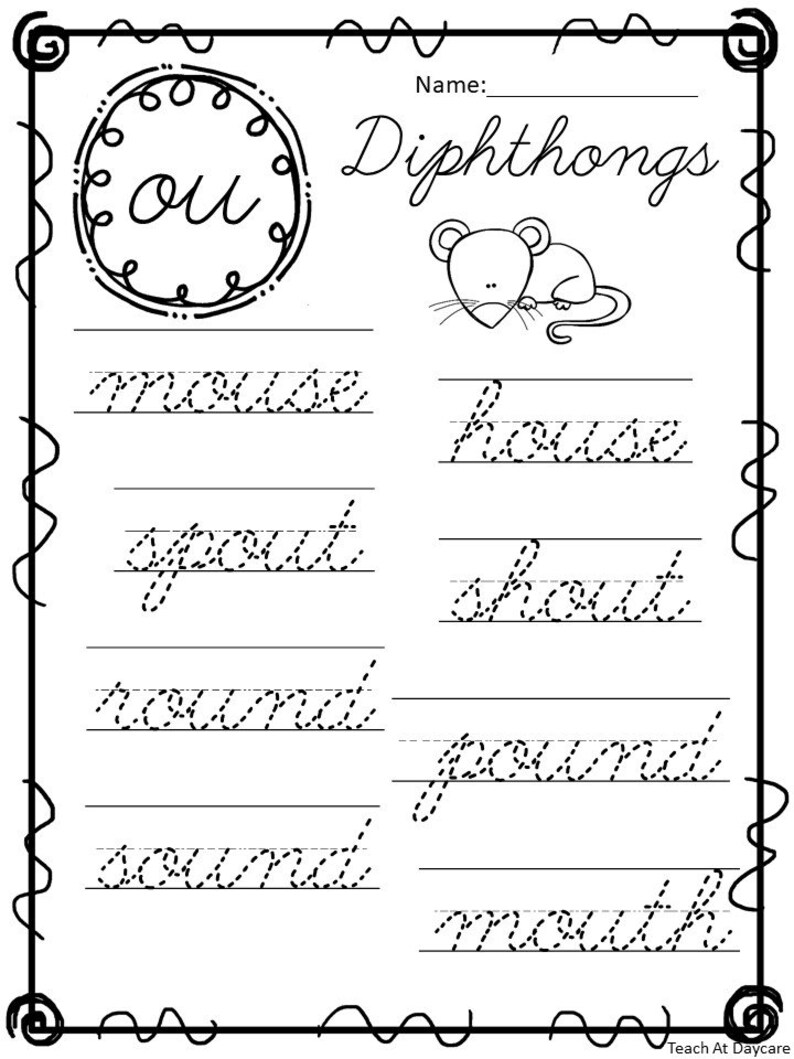 Name:____________________
Diphthongs
ou
mouse
house
spout
shout
round
pound
sound
mouth
Teach At Daycare